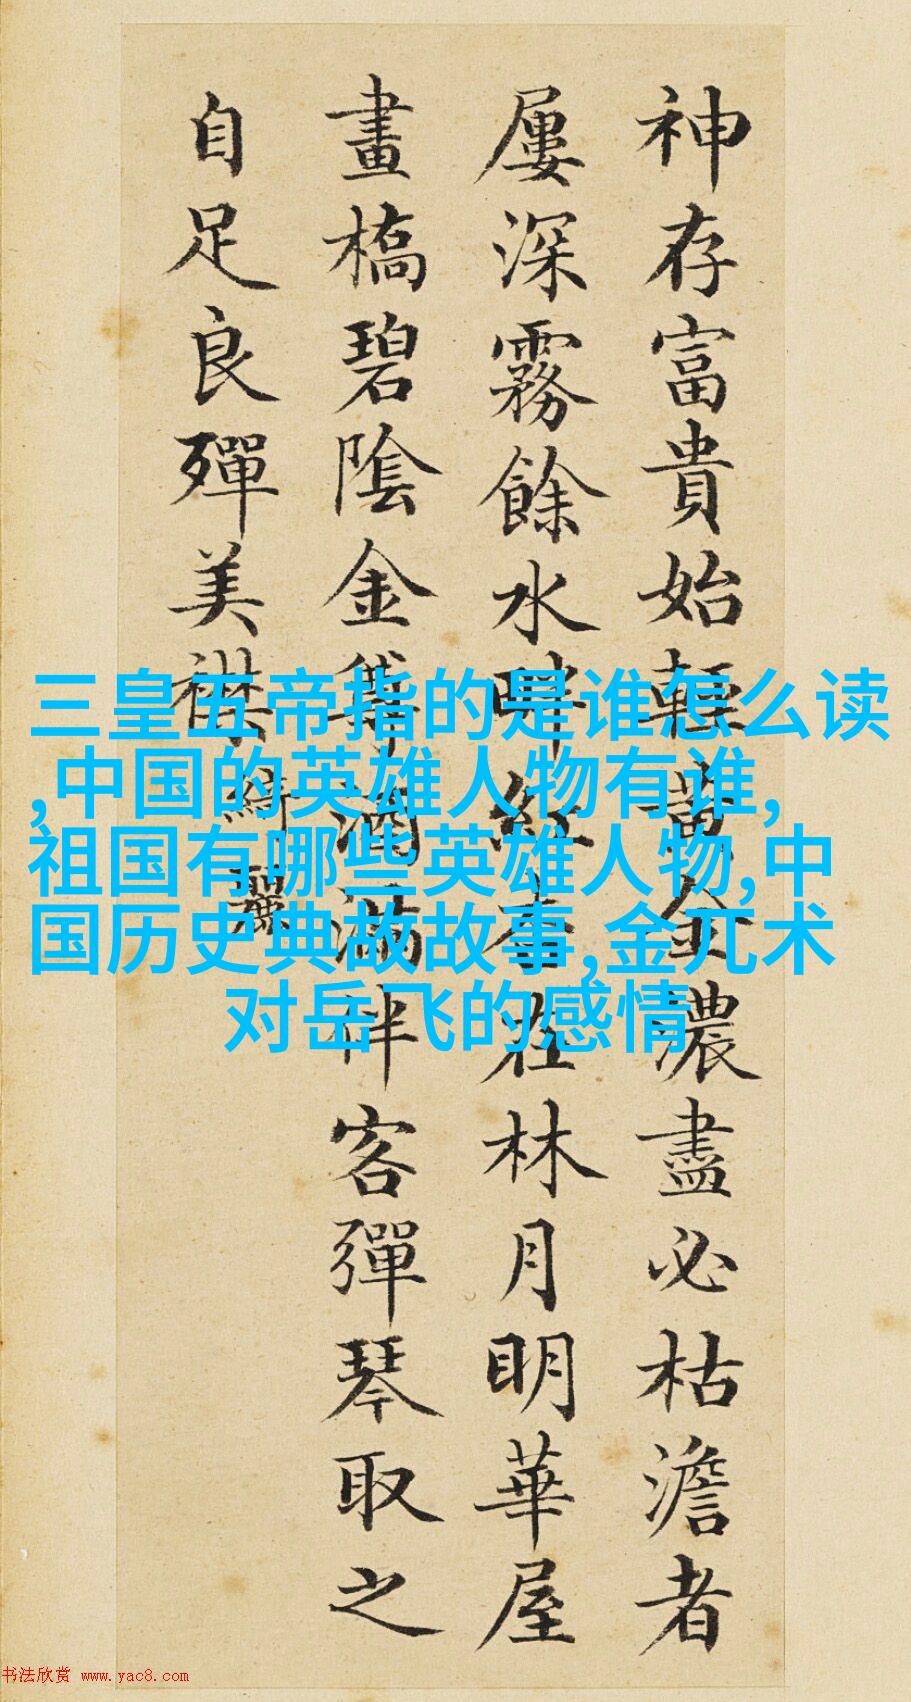 神存富貴始輕黃金濃盡必枯澹者
屢深霧餘水畔紅杏在林月明華屋
畫橋碧陰金尊酒滿伴客彈琴取之
自足良殫美襟
綺麗
三皇五帝指的是谁怎么读
,中国的英雄人物有谁,
祖国有哪些英雄人物,中
国历史典故故事,金兀术
对岳飞的感情
书法欣赏 www.yac8.com